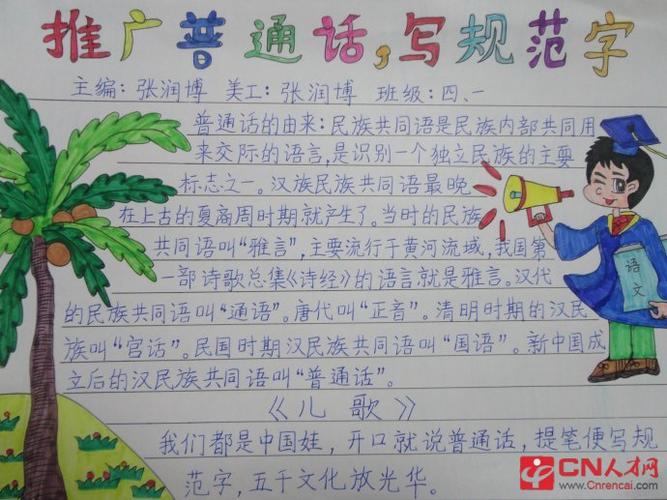 推广普通话,写规范字
主编:张润博 美工:张润博 班级:四、一
普通话的由来:民族共同语是民族内部共同用
来交际的语言,是识别一个独立民族的主要
标志之一。汉族民族共同语最晚
在上古的夏商周时期就产生了。当时的民族
共同语叫“雅言”,主要流行于黄河流域,我国第
一部诗歌总集《诗经》的语言就是雅言。汉代
的民族共同语叫“通语”。唐代叫“正音”。清明时期的汉民
族叫“宫话”。民国时期汉民族共同语叫“国语”。新中国成
立后的汉民族共同语叫“普通话”。
语文
《儿歌》
我们都是中国娃,开口就说普通话,提笔便写规
范字,五千文化放光华。
CN人才网
www.Cnrencai.com